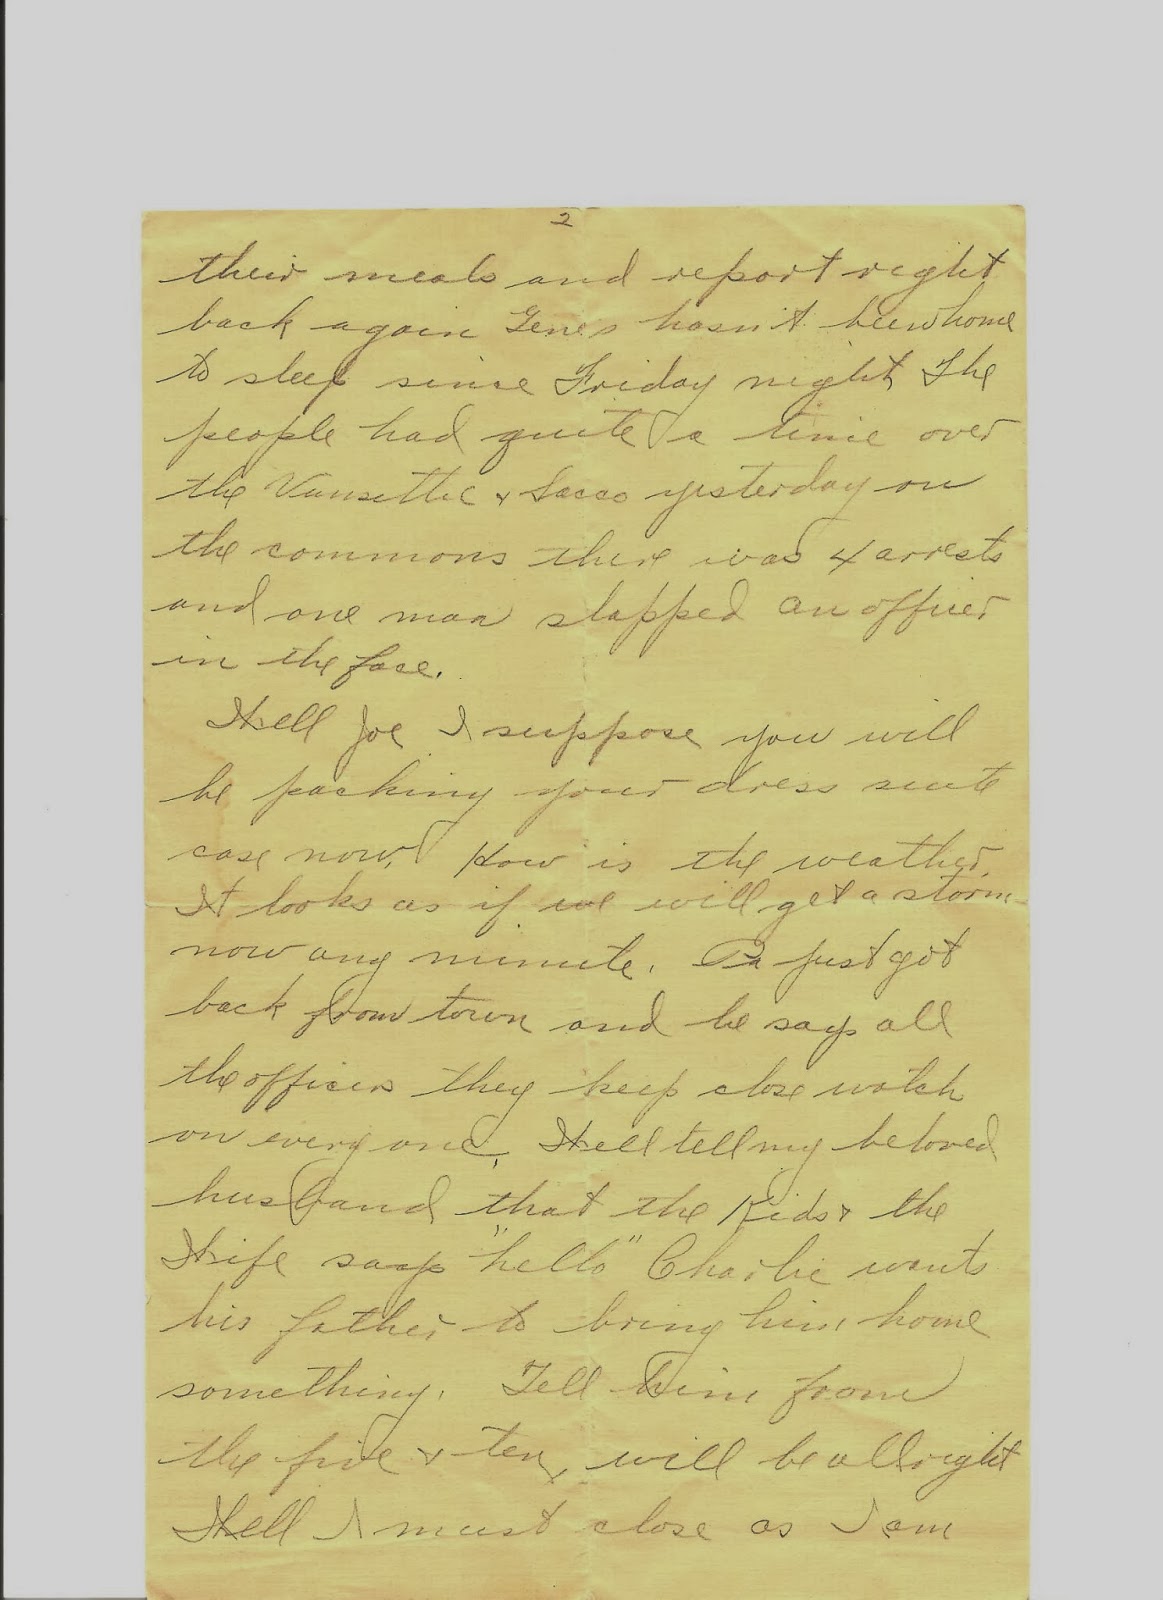 2
their meals and report right
back again Genes hasn't been home
to sleep since Friday night, The
people had quite a time over
the Vansettie & Sacco yesterday on
the commons there was 4 arrests
and one man slapped an officer
in the face.
Well Joe I suppose you will
be packing your dress suite
case now. How is the weather,
It looks as if we will get a storm
now any minute. Pa just got
back from town and he says all
the officers they keep close watch
on every one, Well tell my beloved
husband that the Kids & the
Wife says "hello" Charlie wants
his father to bring him home
something. Tell him from
the five & ten, will be allright
Well I must close as I am